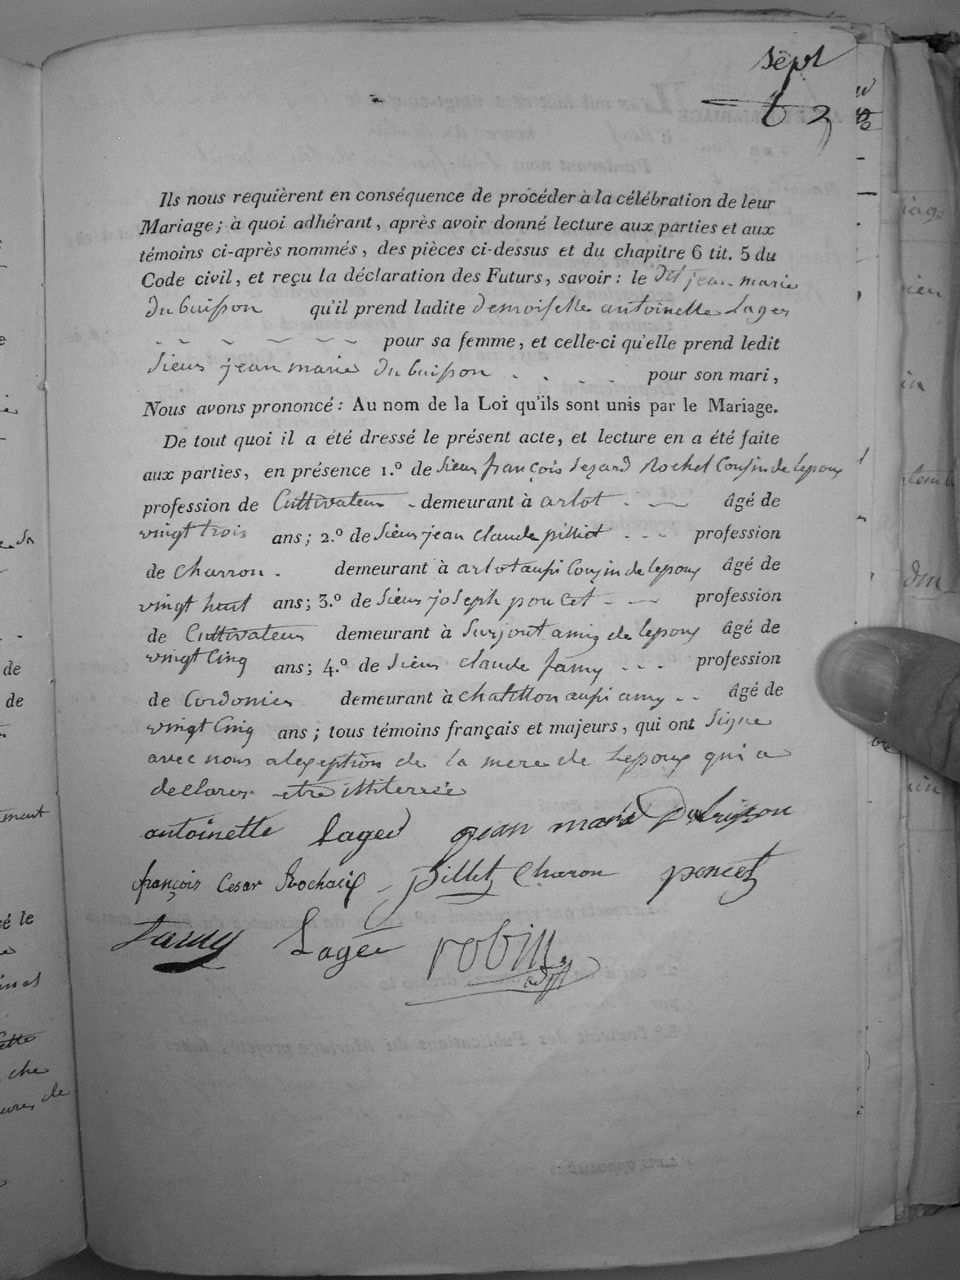 sept
Ils nous requièrent en conséquence de procéder à la célébration de leur
Mariage; à quoi adhérant, après avoir donné lecture aux parties et aux
témoins ci-après nommés, des pièces ci-dessus et du chapitre 6 tit. 5 du
Code civil, et reçu la déclaration des Futurs, savoir: le dit jean marie
Dubuisson qu'il prend ladite demoiselle antoinette Lager
pour sa femme, et celle-ci qu'elle prend ledit
Sieur jean marie Dubuisson pour son mari,
Nous avons prononcé: Au nom de la Loi qu'ils sont unis par le Mariage.
De tout quoi il a été dressé le présent acte, et lecture en a été faite
aux parties, en présence 1.º de Sieur françois Sezard Rochel Cousin de lepoux
profession de Cultivateur demeurant à arlot âgé de
vingt trois ans; 2.º de Sieur jean claude pilliet profession
de charron demeurant à arlot aussi Cousin de lepoux âgé de
vingt huit ans; 3.º de Sieur joseph poncet profession
de Cultivateur demeurant à Surjout amis de lepoux âgé de
vingt Cinq ans; 4.º de Sieur claude famy profession
de Cordonier demeurant à chatillon aussi amy âgé de
vingt Cinq ans; tous témoins français et majeurs, qui ont Signe
avec nous a lexeption de la mere de Lepoux qui a
declarer etre illiteree
antoinette Lager jean marie Dubuisson
françois Cesar Rochaix Billet Charon poncet
famy Lager robin
adjt